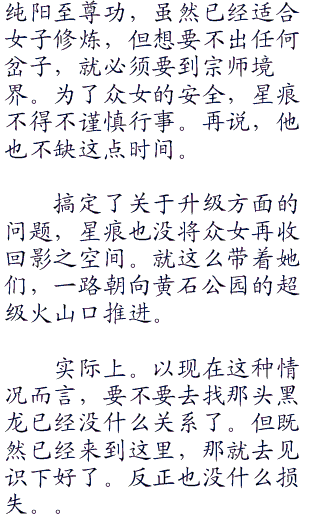 纯阳至尊功，虽然已经适合
女子修炼，但想要不出任何
岔子，就必须要到宗师境
界。为了众女的安全，星痕
不得不谨慎行事。再说，他
也不缺这点时间。
搞定了关于升级方面的
问题，星痕也没将众女再收
回影之空间。就这么带着她
们，一路朝向黄石公园的超
级火山口推进。
实际上。以现在这种情
况而言，要不要去找那头黑
龙已经没什么关系了。但既
然已经来到这里，那就去见
识下好了。反正也没什么损
失。。